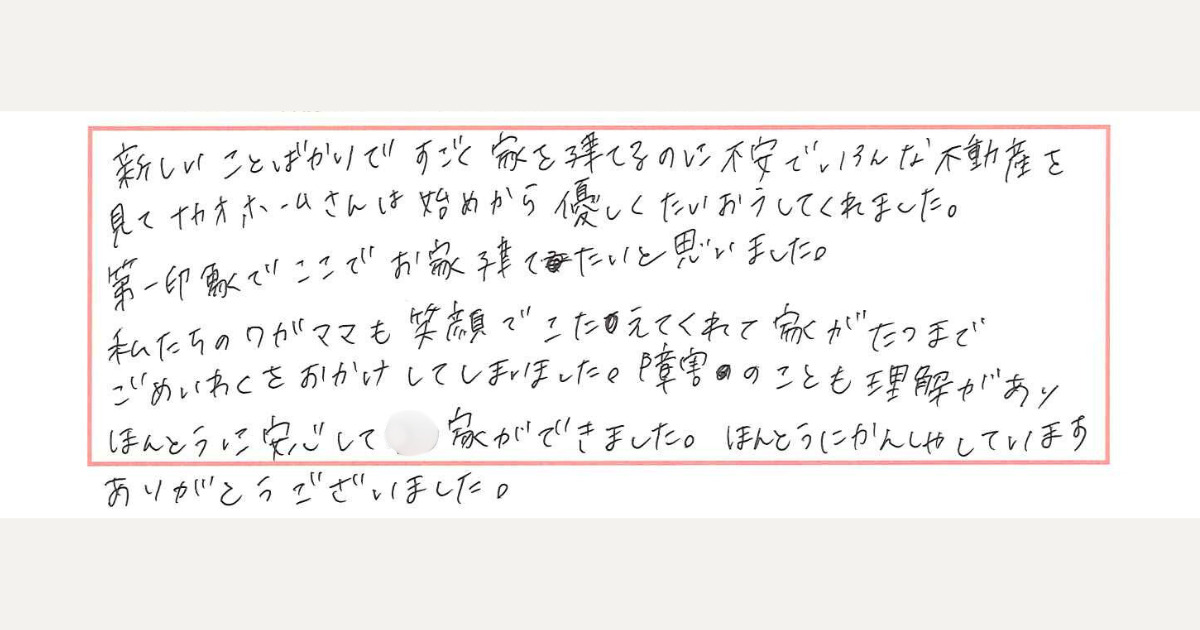 新しいことばかりですごく家を建てるのに不安でいろんな不動産を
見てナカオホームさんは始めから優しくたいおうしてくれました。
第一印象でここでお家建てたいと思いました。
私たちのワガママも笑顔でこたえてくれて家がたつまで
ごめいわくをおかけしてしまいました。障害のことも理解があり
ほんとうに安心して 家ができました。ほんとうにかんしゃしています
ありがとうございました。